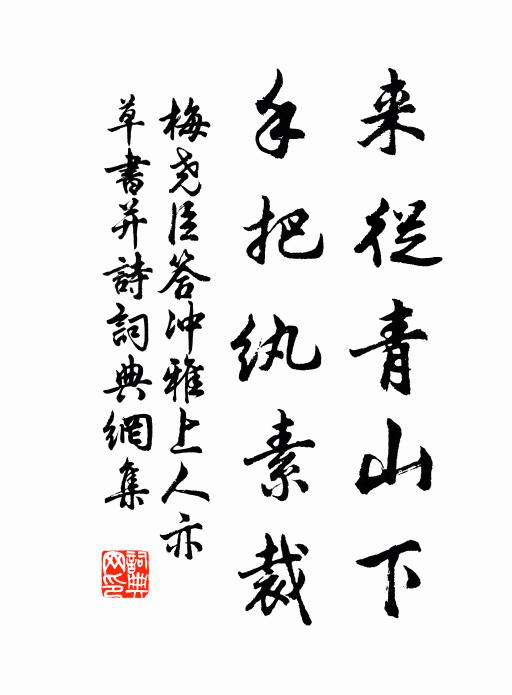 来從青山下
手把纨素裁
梅尧臣答冲雅上人亦
草書并詩詞典網集
詞典
网印